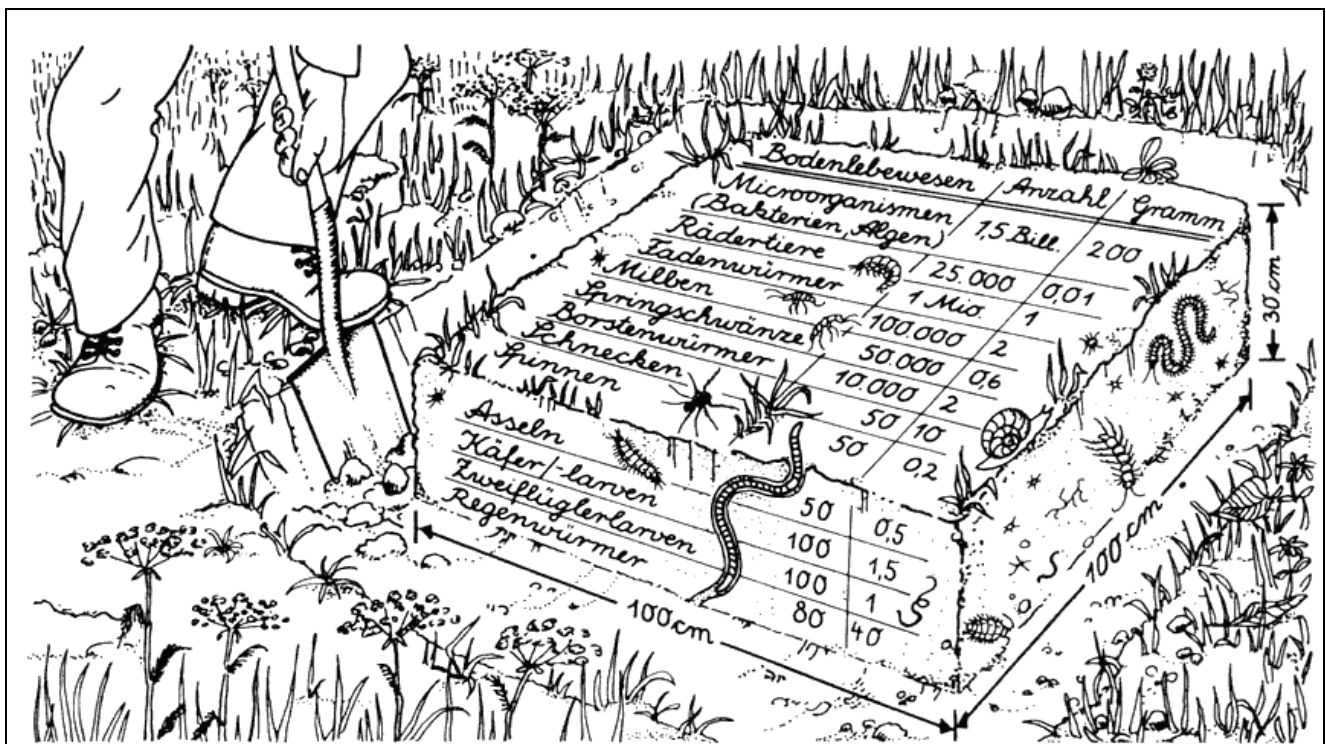 Bodenlebewesen Anzahl Gramm
Microorganismen
(Bakterien, Algen) 1,5 Bill. 200
Rädertiere 25.000 0,01
Fadenwürmer 1 Mio. 1
Milben 100.000 2
Springschwänze 50.000 0,6
Borstenwürmer 10.000 2
Schnecken 50 10
Spinnen 50 0,2
Asseln 50 0,5
Käfer/-larven 100 1,5
Zweiflüglerlarven 100 1
Regenwürmer 80 40
30 cm
100 cm
100 cm